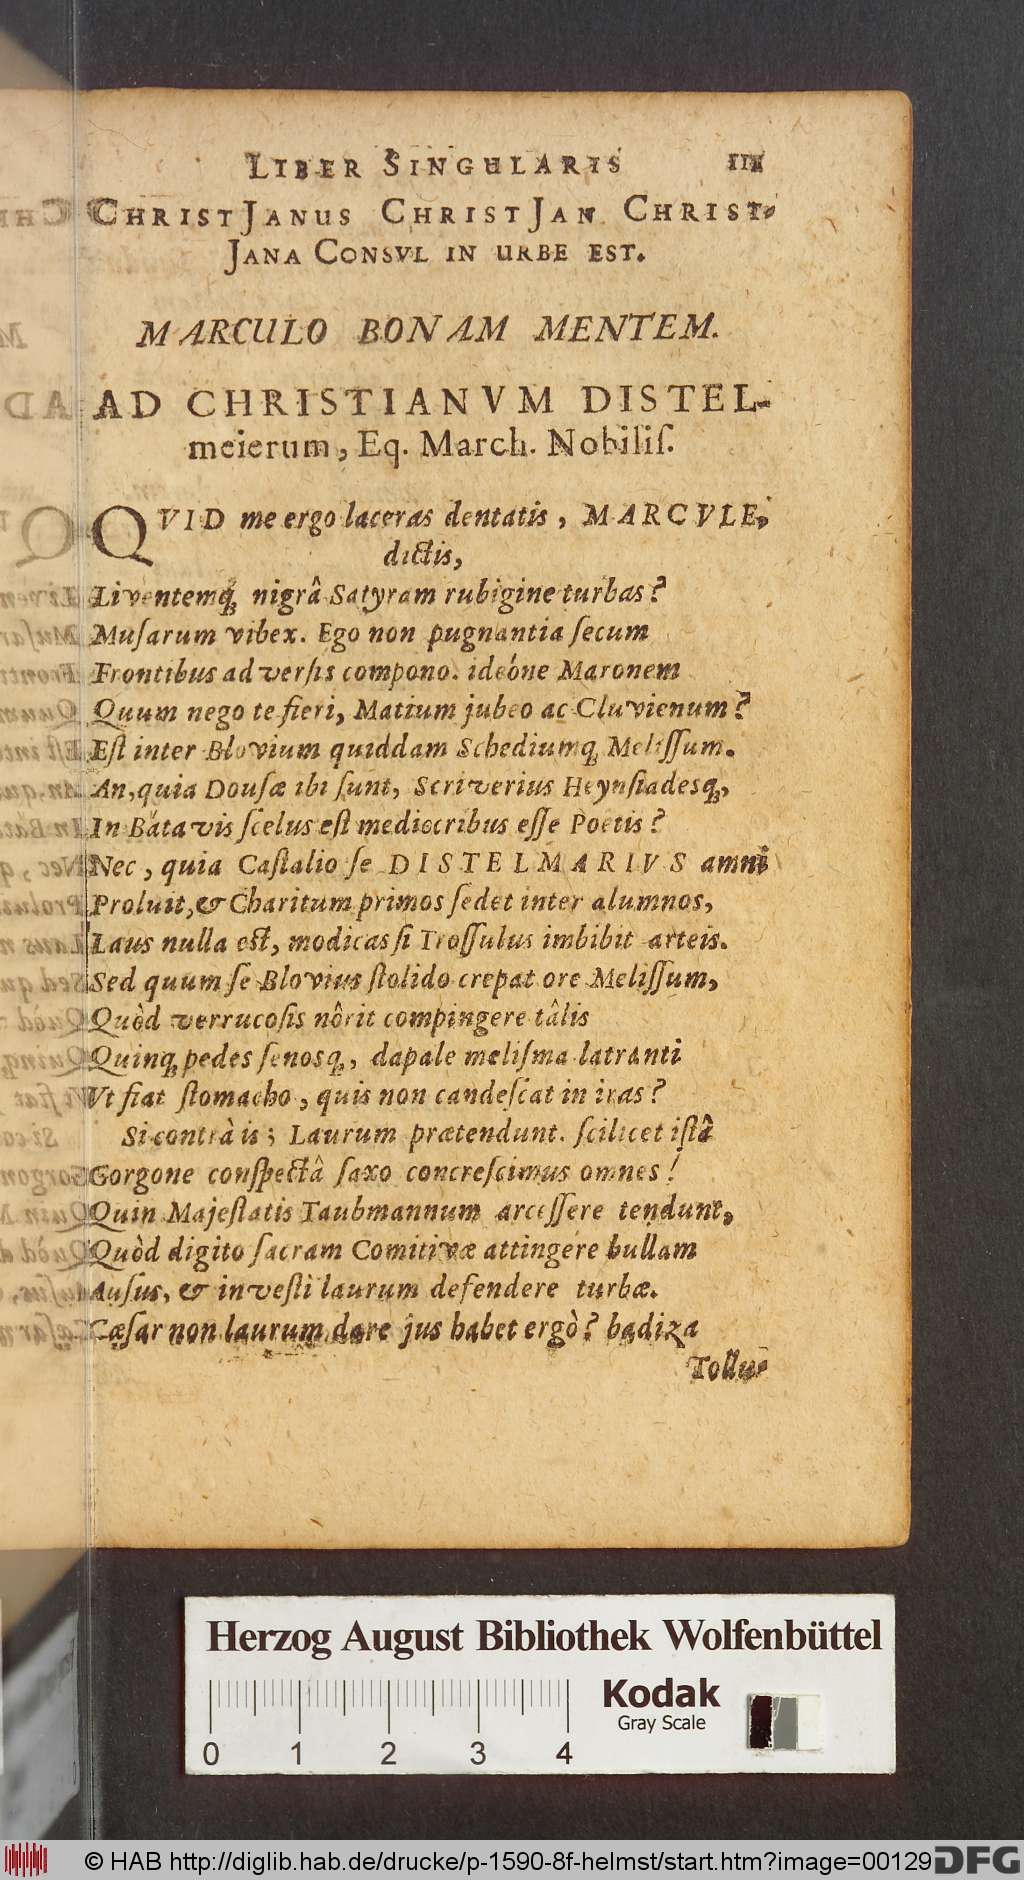 LIBER SINGULARIS 111
CHRISTJANUS CHRISTJAN CHRIST-
JANA CONSVL IN URBE EST.
MARCULO BONAM MENTEM.
AD CHRISTIANVM DISTEL-
meierum, Eq. March. Nobiliſ.
QVID me ergo laceras dentatis, MARCVLE,
dictis,
Liventemq́ʒ nigrâ Satyram rubigine turbas?
Muſarum vibex. Ego non pugnantia ſecum
Frontibus adverſis compono. ideóne Maronem
Quum nego te fieri, Matium jubeo ac Cluvienum?
Eſt inter Blovium quiddam Schediumqʒ Meliſſum.
An, quia Douſæ ibi ſunt, Scriverius Heynſiadesqʒ,
In Batavis ſcelus eſt mediocribus eſſe Poetis?
Nec, quia Caſtalio ſe DISTELMARIVS amni
Proluit, & Charitum primos ſedet inter alumnos,
Laus nulla est, modicas ſi Troſſulus imbibit arteis.
Sed quum ſe Blovius ſtolido crepat ore Meliſſum,
Quòd verrucoſis nôrit compingere tâlis
Quinqʒ pedes ſenosqʒ, dapale meliſma latranti
Vt fiat ſtomacho, quis non candeſcat in iras?
Si contrà is; Laurum prætendunt. ſcilicet iſtâ
Gorgone conſpectâ ſaxo concreſcimus omnes!
Quin Majeſtatis Taubmannum arceſſere tendunt,
Quòd digito ſacram Comitivæ attingere bullam
Auſus, & inveſti laurum defendere turbæ.
Cæſar non laurum dare jus habet ergò? badiza
Tollu-
Herzog August Bibliothek Wolfenbüttel
Kodak
Gray Scale
0 1 2 3 4
© HAB http://diglib.hab.de/drucke/p-1590-8f-helmst/start.htm?image=00129
DFG